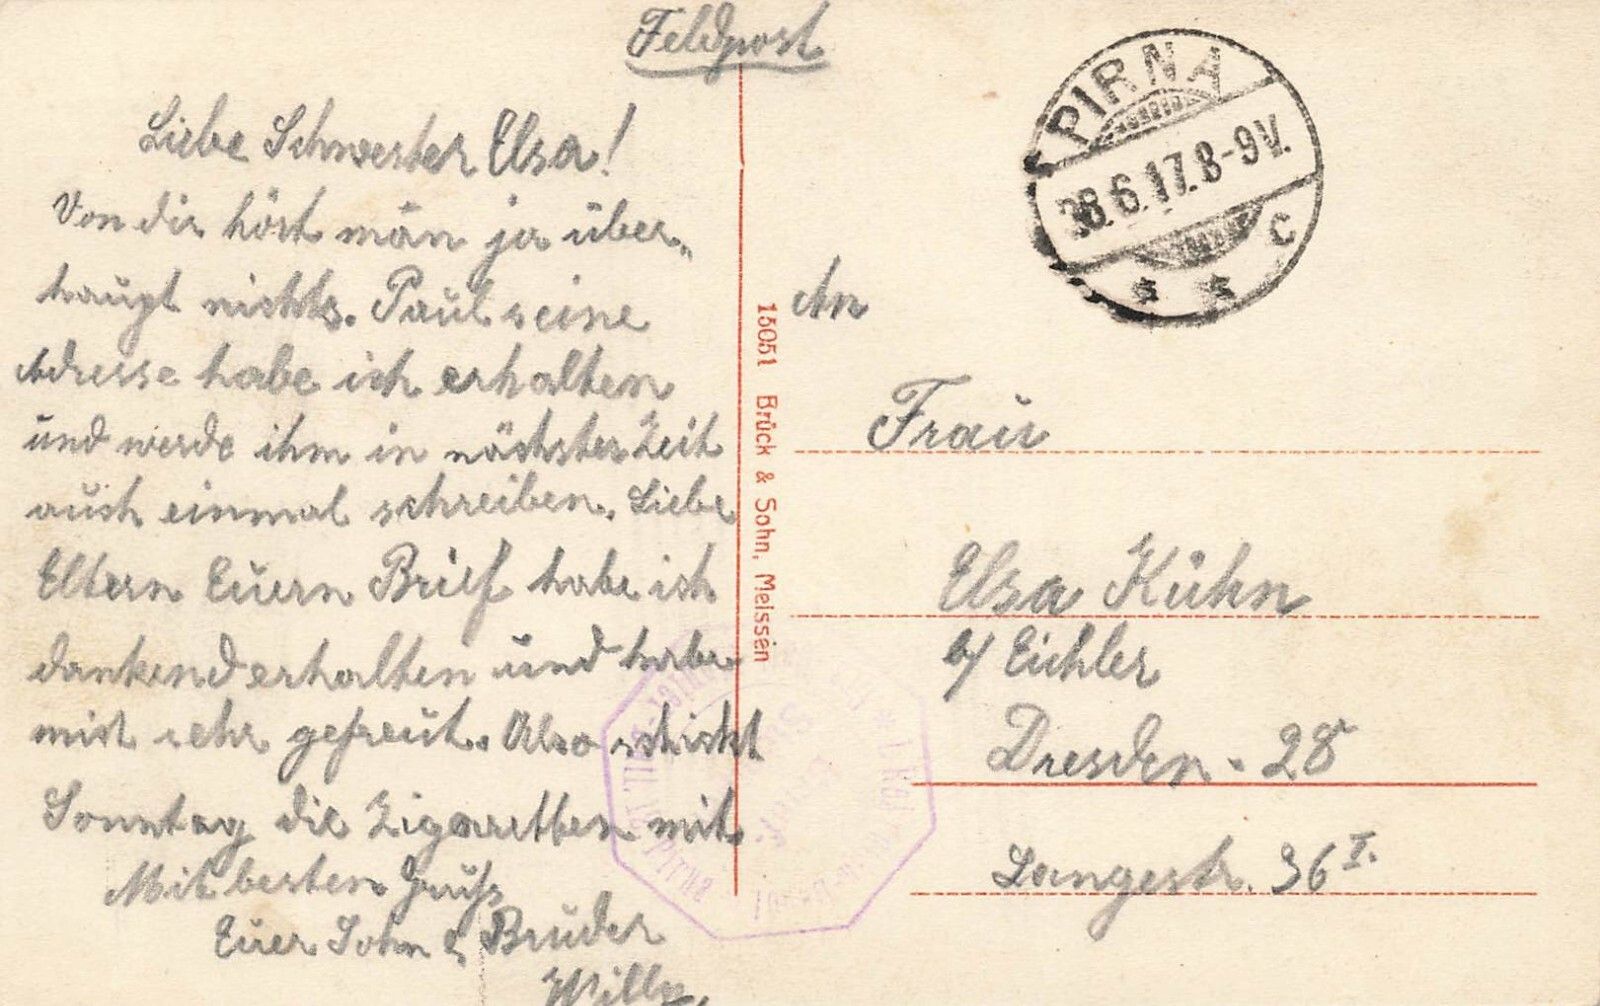 Feldpost
Liebe Schwester Elsa!
Von dir hört man ja über-
haupt nichts. Paul seine
Adresse habe ich erhalten
und werde ihm in nächster Zeit
auch einmal schreiben. Liebe
Eltern Euern Brief habe ich
dankend erhalten und habe
mich sehr gefreut. Also schickt
Sonntag die Zigaretten mit.
Mit besten Gruß
Euer Sohn & Bruder
Willy.
15051 Brück & Sohn, Meissen
PIRNA
28.6.17.8-9V.
* * c
An
Frau
Elsa Kühn
b/ Eichler
Dresden - 28
Langestr. 36 I.
PIRNA